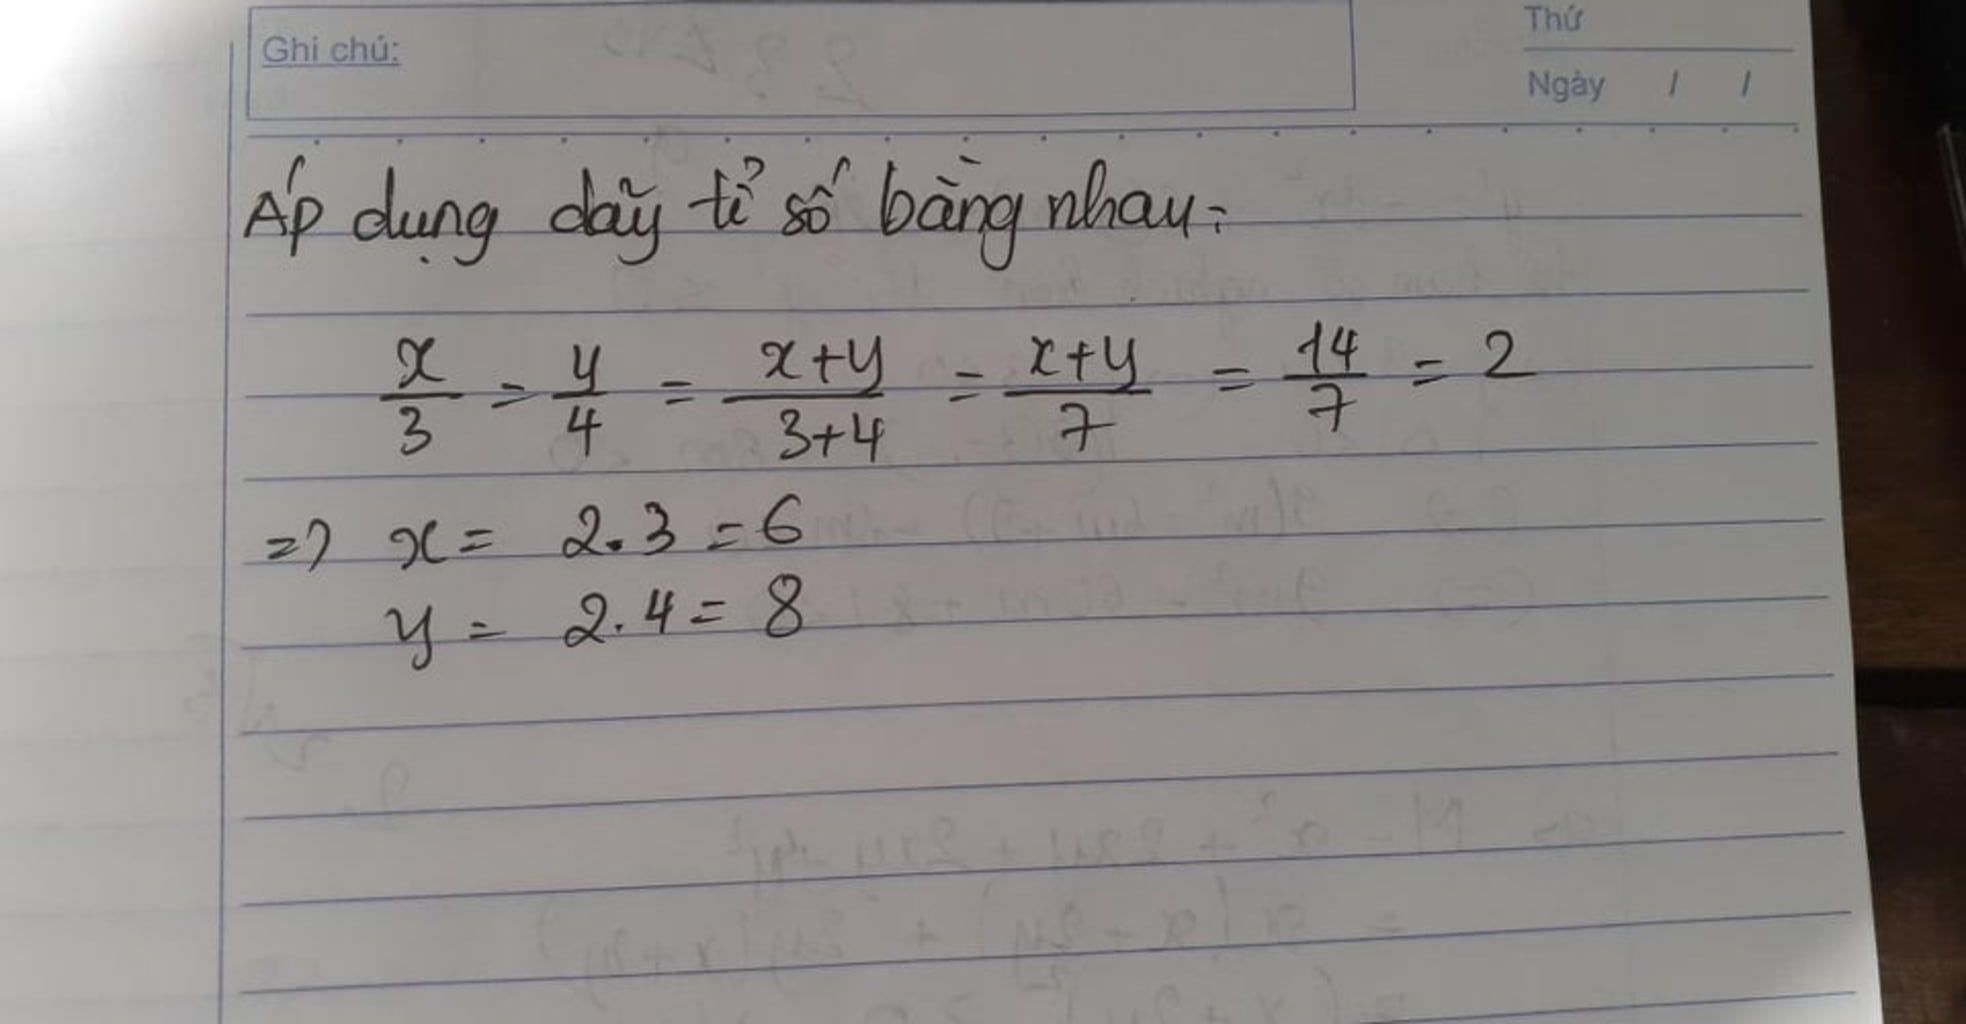 Ghi chú:
Thứ
Ngày / /
Áp dụng dãy tỉ số bằng nhau:
x/3 = y/4 = x+y/3+4 = x+y/7 = 14/7 = 2
=> x = 2.3 = 6
y = 2.4 = 8